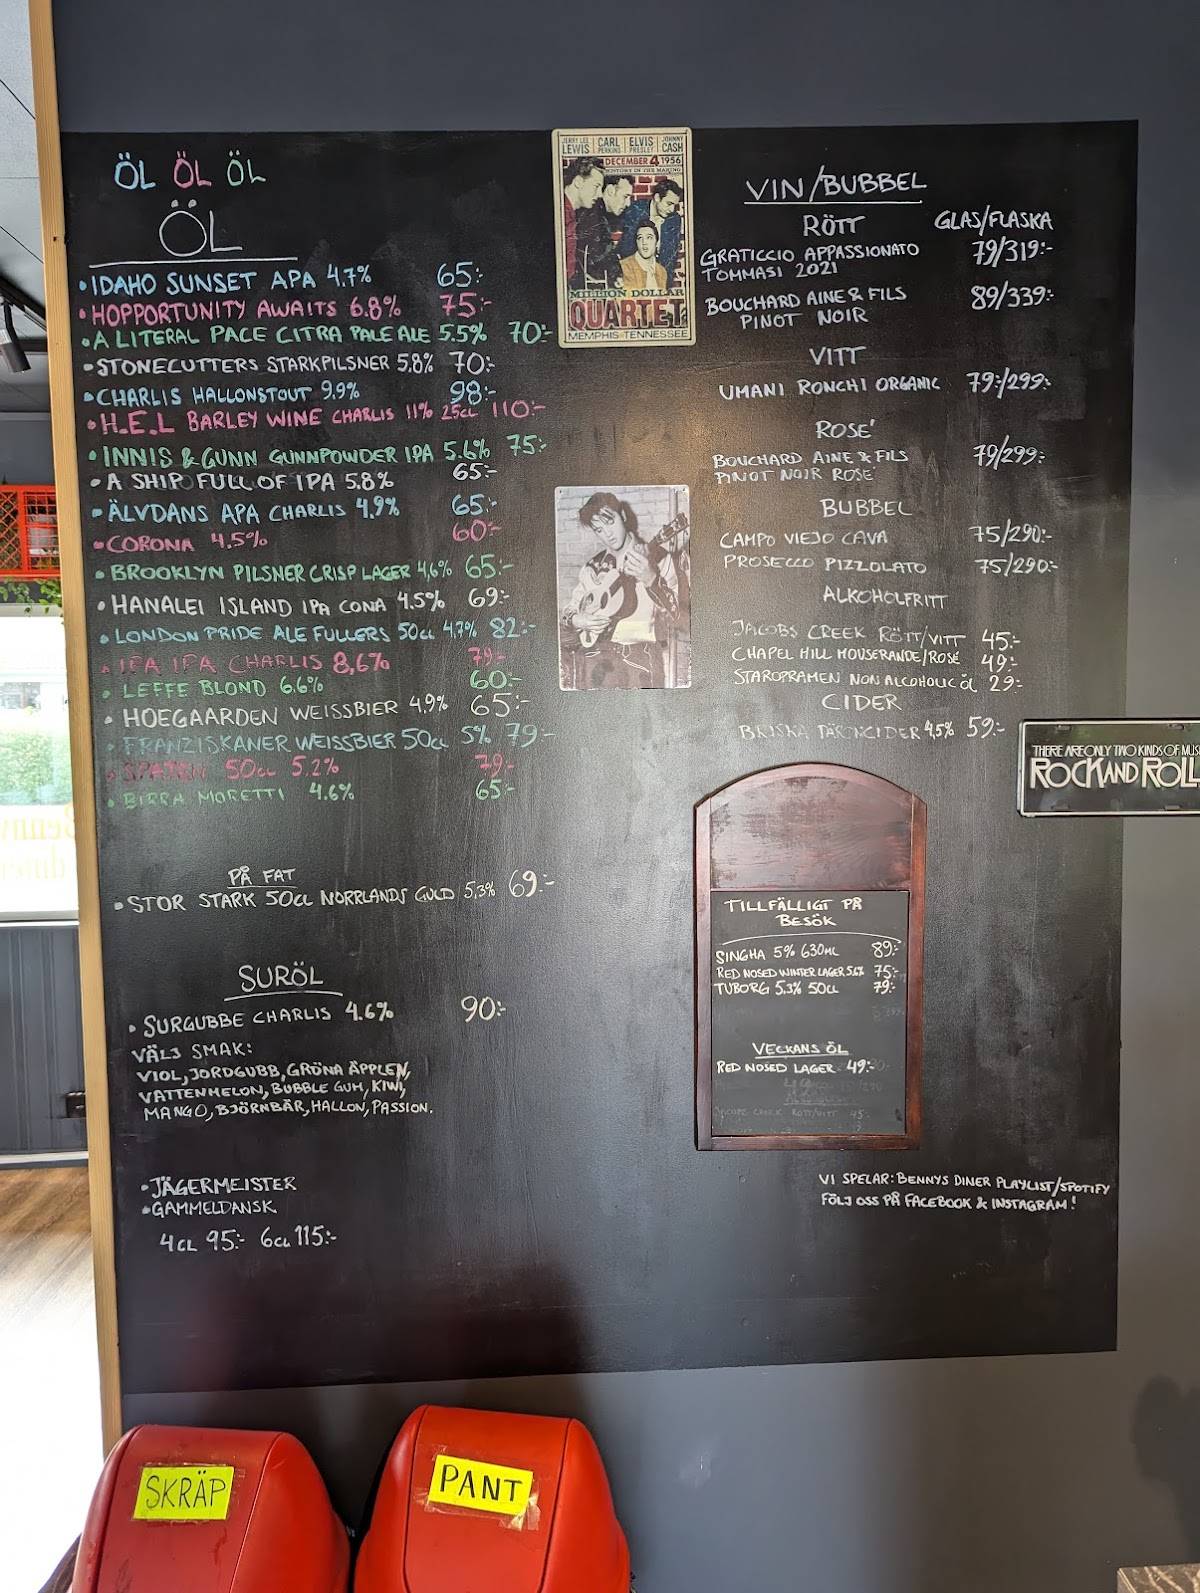 ÖL ÖL ÖL
ÖL
• IDAHO SUNSET APA 4.7% 65:-
• HOPPORTUNITY AWAITS 6.8% 75:-
• A LITERAL PACE CITRA PALE ALE 5.5% 70:-
• STONECUTTERS STARKPILSNER 5.8% 70:-
• CHARLIS HALLONSTOUT 9.9% 98:-
• H.E.L BARLEY WINE CHARLIS 11% 25CL 110:-
• INNIS & GUNN GUNNPOWDER IPA 5.6% 75:-
• A SHIP FULL OF IPA 5.8% 65:-
• ÄLVDANS APA CHARLIS 4.9% 65:-
• CORONA 4.5% 60:-
• BROOKLYN PILSNER CRISP LAGER 4,6% 65:-
• HANALEI ISLAND IPA CONA 4.5% 69:-
• LONDON PRIDE ALE FULLERS 50CL 4.7% 82:-
• IPA IPA CHARLIS 8,6% 79:-
• LEFFE BLOND 6.6% 60:-
• HOEGAARDEN WEISSBIER 4,9% 65:-
• FRANZISKANER WEISSBIER 50CL 5% 79:-
• SPATEN 50CL 5.2% 79:-
• BIRRA MORETTI 4.6% 65:-
PÅ FAT
• STOR STARK 50CL NORRLANDS GULD 5,3% 69:-
SURÖL
• SURGUBBE CHARLIS 4.6% 90:-
VÄLJ SMAK:
VIOL, JORDGUBB, GRÖNA ÄPPLEN,
VATTENMELON, BUBBLE GUM, KIWI,
MANGO, BJÖRNBÄR, HALLON, PASSION.
• JÄGERMEISTER
• GAMMELDANSK
4CL 95:- 6CL 115:-
JERRY LEE LEWIS CARL PERKINS ELVIS PRESLEY JOHNNY CASH
DECEMBER 4 1956
HISTORY IN THE MAKING
MILLION DOLLAR
QUARTET
MEMPHIS TENNESSEE
VIN/BUBBEL
RÖTT GLAS/FLASKA
GRATICCIO APPASSIONATO 79/319:-
TOMMASI 2021
BOUCHARD AINE & FILS 89/339:-
PINOT NOIR
VITT
UMANI RONCHI ORGANIC 79:/299:-
ROSE'
BOUCHARD AINE & FILS 79/299:-
PINOT NOIR ROSE'
BUBBEL
CAMPO VIEJO CAVA 75/290:-
PROSECCO PIZZOLATO 75/290:-
ALKOHOLFRITT
JACOBS CREEK RÖTT/VITT 45:-
CHAPEL HILL MOUSERANDE/ROSÉ 49:-
STAROPRAMEN NON ALCOHOLIC ÖL 29:-
CIDER
BRISKA PÄRONCIDER 4,5% 59:-
THERE ARE ONLY TWO KINDS OF MUS
ROCK AND ROLL
TILLFÄLLIGT PÅ
BESÖK
SINGHA 5% 630ML 89:-
RED NOSED WINTER LAGER 5.6% 75:-
TUBORG 5.3% 50CL 79:-
VECKANS ÖL
RED NOSED LAGER 49:-
VI SPELAR: BENNYS DINER PLAYLIST/SPOTIFY
FÖLJ OSS PÅ FACEBOOK & INSTAGRAM!
SKRÄP
PANT